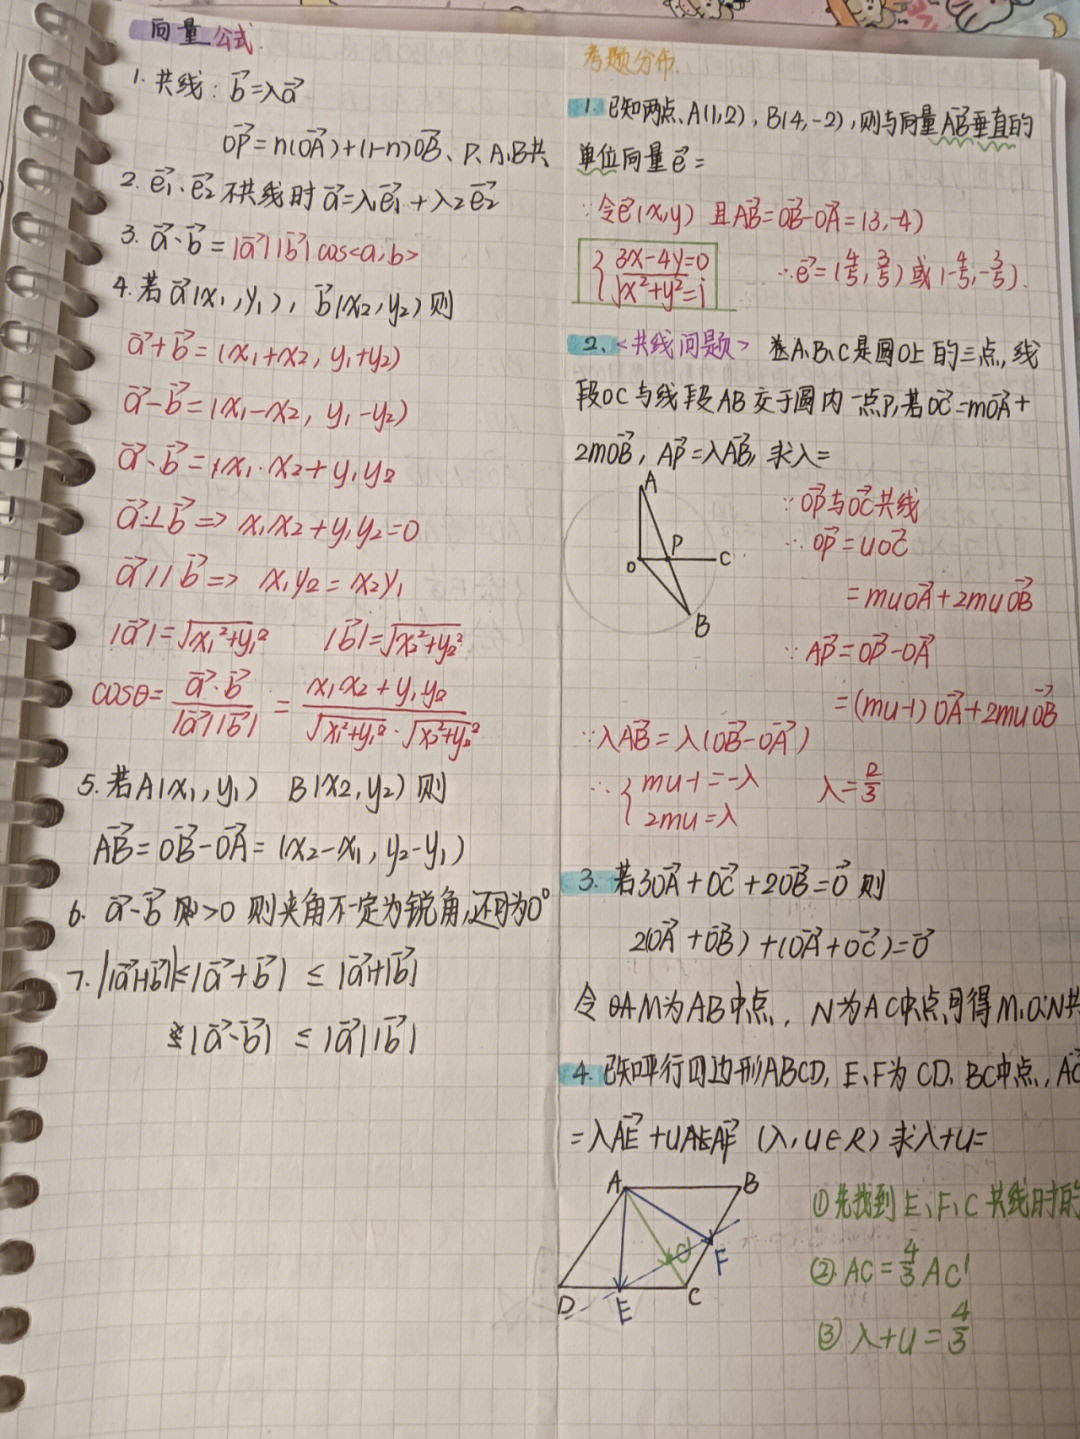 向量公式.
1. 共线: b⃗=λa⃗
OP⃗=n(OA⃗)+(1-n)OB⃗、P、A、B共
2. e₁⃗、e₂⃗ 不共线时 a⃗=λ₁e₁⃗+λ₂e₂⃗
3. a⃗·b⃗=|a⃗||b⃗|cos<a,b>
4. 若a⃗(x₁,y₁), b⃗(x₂,y₂)则
a⃗+b⃗=(x₁+x₂, y₁+y₂)
a⃗-b⃗=(x₁-x₂, y₁-y₂)
a⃗·b⃗=x₁·x₂+y₁y₂
a⃗⊥b⃗=>x₁x₂+y₁y₂=0
a⃗//b⃗=> x₁y₂=x₂y₁
|a⃗|=√(x₁²+y₁²) |b⃗|=√(x₂²+y₂²)
cosθ=a⃗·b⃗/|a⃗||b⃗|=x₁x₂+y₁y₂/√(x₁²+y₁²)·√(x₂²+y₂²)
5. 若A(x₁,y₁) B(x₂,y₂)则
AB⃗=OB⃗-OA⃗=(x₂-x₁,y₂-y₁)
6. a⃗·b⃗ 则>0 则夹角不一定为锐角,还可为0°
7. ||a⃗|-|b⃗||≤|a⃗+b⃗| ≤|a⃗|+|b⃗|
|a⃗·b⃗| ≤|a⃗||b⃗|
考题分布.
1. 已知两点、A(1,2), B(4,-2),则与向量AB⃗垂直的
单位向量e⃗=
∵令e⃗(x,y) 且AB⃗=OB⃗-OA⃗=(3,-4)
{3x-4y=0
√(x²+y²)=1
∴e⃗=(4/5,3/5)或(-4/5,-3/5).
2、<共线问题> 若A、B、C是圆O上的三点,线
段OC与线段AB交于圆内一点P,若OC⃗=mOA⃗+
2mOB⃗, AP⃗=λAB⃗, 求λ=
A
P
O
C
B
∵OP⃗与OC⃗共线
∴OP⃗=uOC⃗
=muOA⃗+2muOB⃗
∵AP⃗=OP⃗-OA⃗
=(mu-1)OA⃗+2muOB⃗
∵λAB⃗=λ(OB⃗-OA⃗)
∴{mu-1=-λ
2mu=λ
λ=2/3
3. 若3OA⃗+OC⃗+2OB⃗=0⃗ 则
2(OA⃗+OB⃗)+(OA⃗+OC⃗)=0⃗
令M为AB中点, N为AC中点可得M、O、N共
4. 已知平行四边形ABCD, E、F为CD、BC中点, AC⃗
=λAE⃗+uAF⃗ (λ,u∈R)求λ+u=
A
B
C'
F
D
E
C
①先找到E、F、C共线时的
② AC=4/3AC'
③ λ+u=4/3